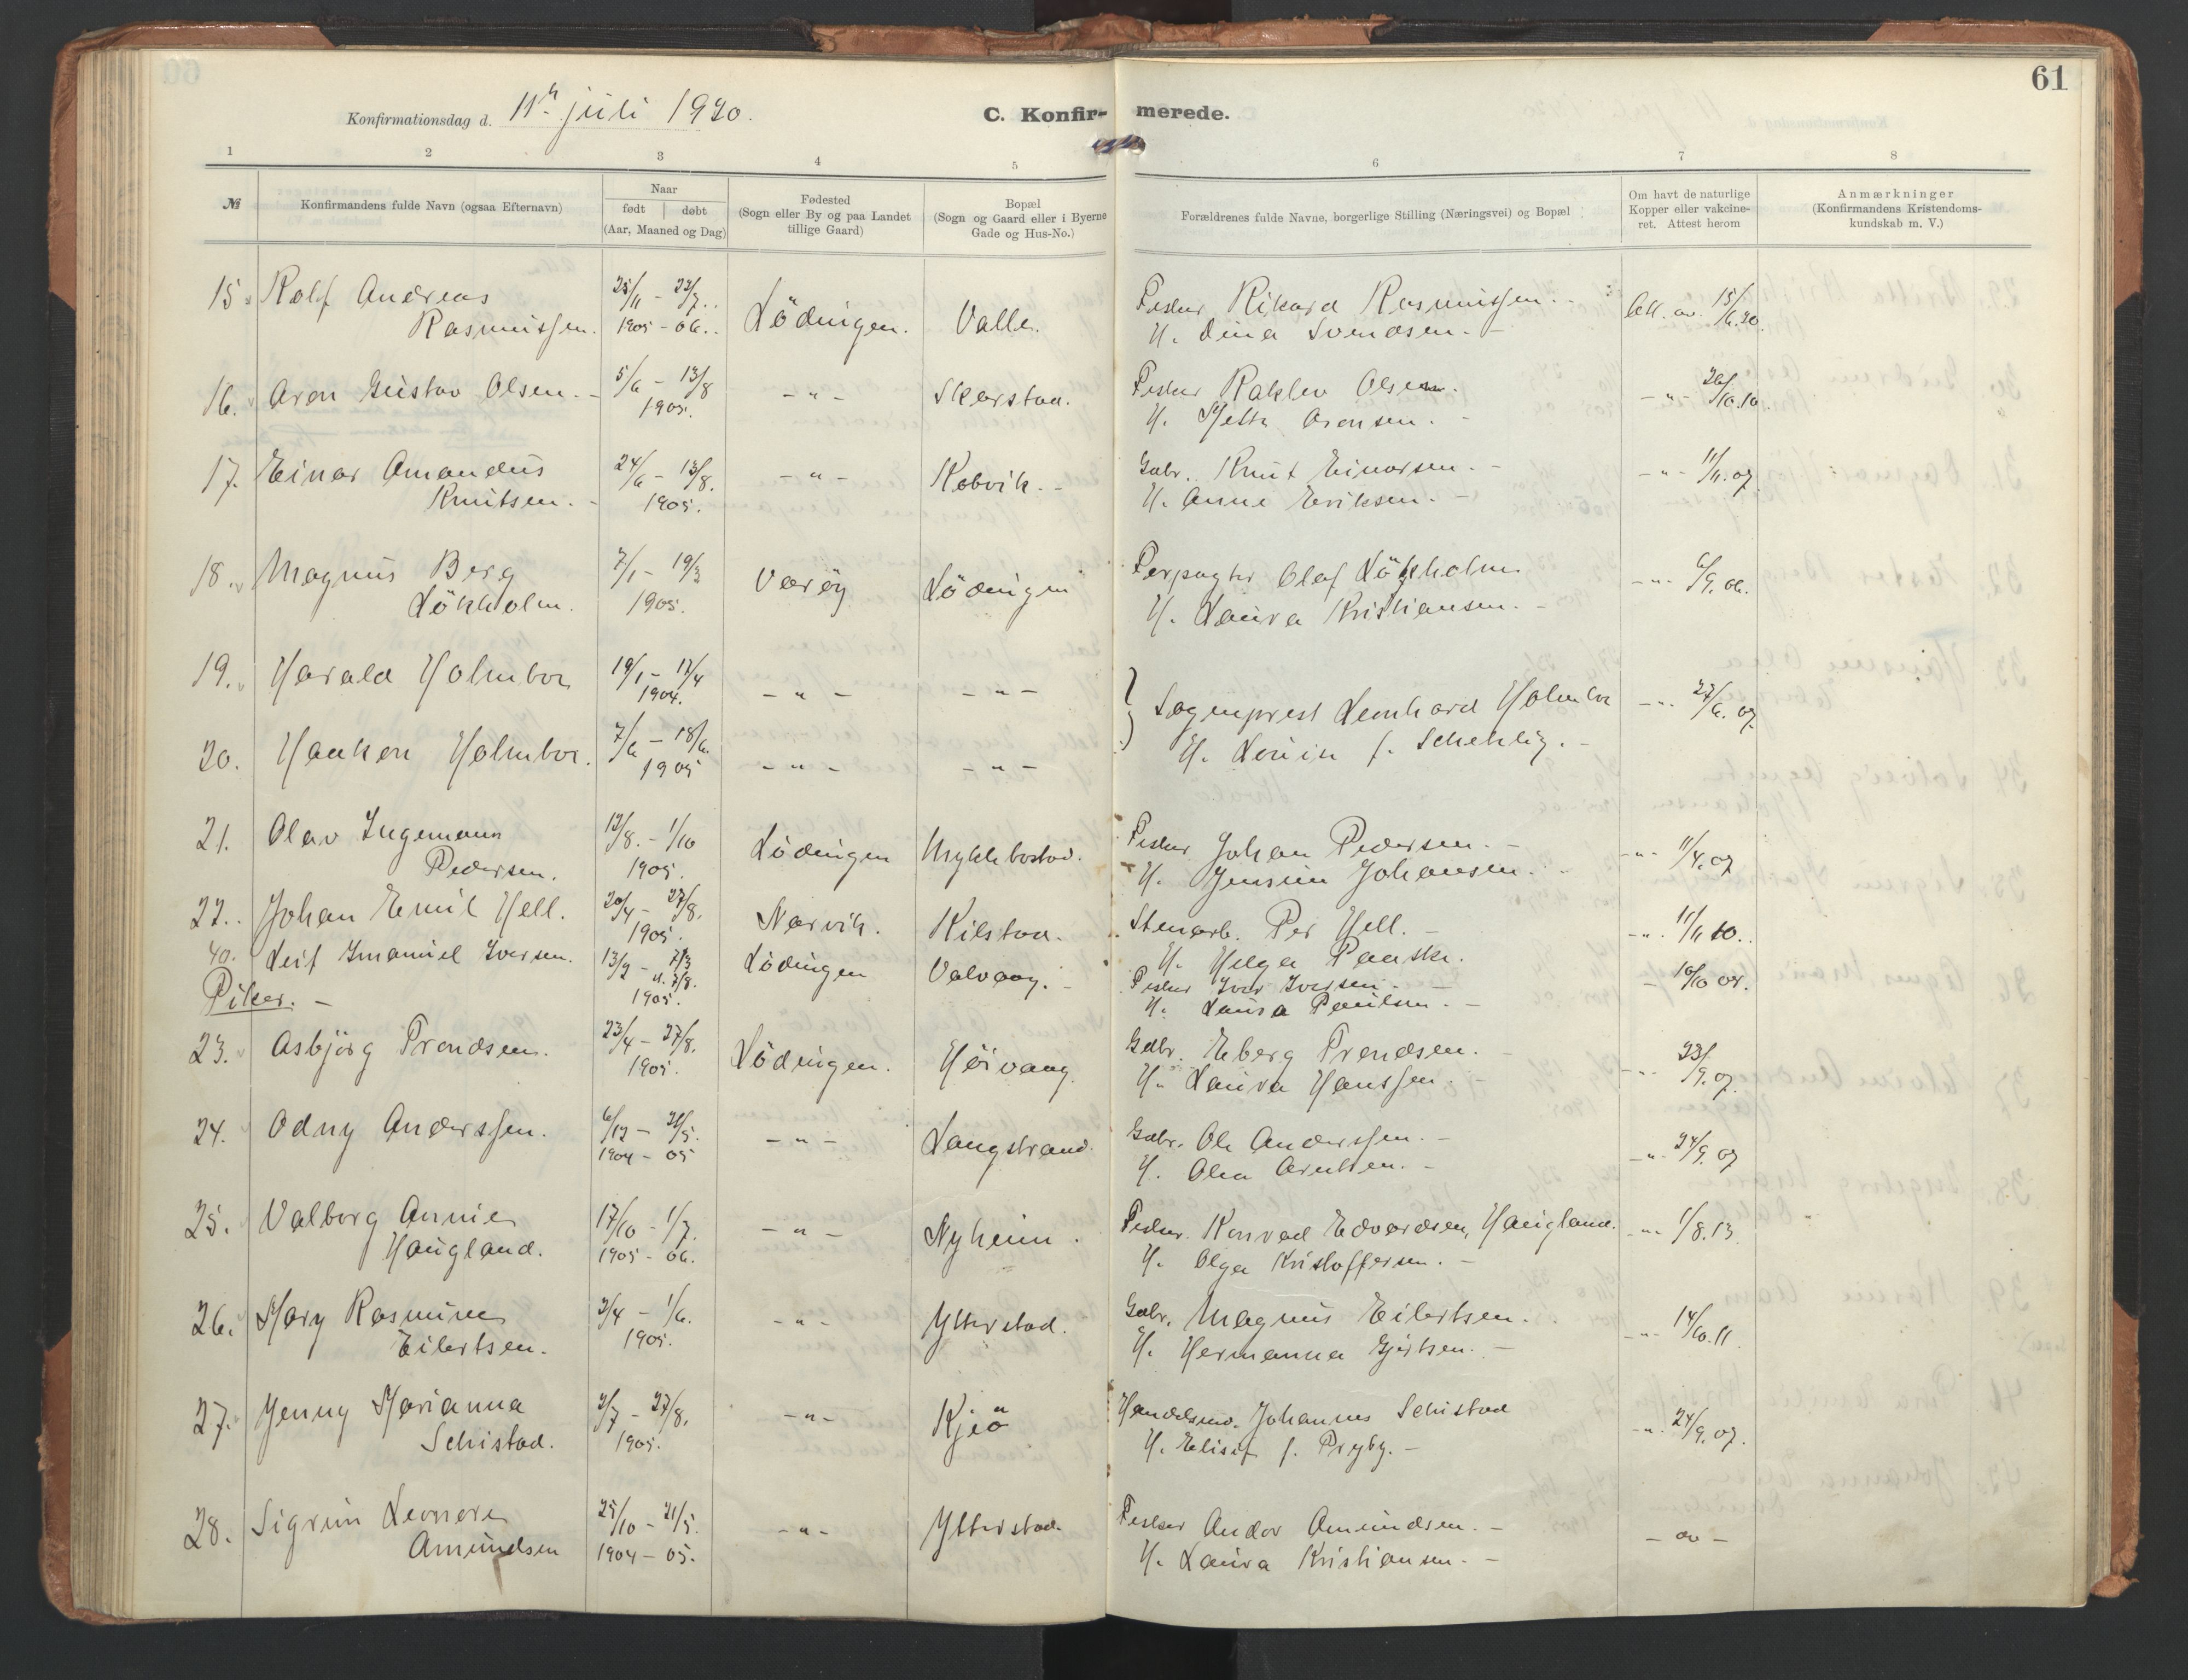 61
Konfirmationsdag d. 11te juli 1920.
C. Konfir- merede.
1 2 3 4 5 6 7 8
№
Konfirmandens fulde Navn (ogsaa Efternavn)
Naar
født | døbt
(Aar, Maaned og Dag)
Fødested
(Sogn eller By og paa Landet
tillige Gaard)
Bopæl
(Sogn og Gaard eller i Byerne
Gade og Hus-No.)
Forældrenes fulde Navne, borgerlige Stilling (Næringsvei) og Bopæl
Om havt de naturlige
Kopper eller vakcine-
ret. Attest herom
Anmærkninger
(Konfirmandens Kristendoms-
kundskab m. V.)
15. Rolf Andreas 25/11 - 22/7. Fisker Rikard Rasmussen. - Att. av 15/6.20.
Rasmussen. 1905 - 06. Lödingen. Valle. H. Dina Svendsen. -
16. Aron Gustav Olsen. - 5/6 - 13/8 -"- Skarstad. Fisker Raklev Olsen. -"- 26/10.10.
1905. H. Mette Aronsen. -
17. Einar Amandus 24/6 - 13/8. -"- Kobvik. - Gbr. Knut Einarsen. - -"- 11/11.07
Knutsen. - 1905. H. Anne Eriksen. -
18. Magnus Berg 7/1 - 19/3 Værøy Lödingen Forpagter Olaf Lökholm -"- 6/9.06.
Lökholm. 1905. H. Laura Kristiansen. -
19. Harald Holmboe 19/1 - 17/4 -"- -"-
1904.
Sogneprest Leonhard Holmboe -"- 27/6.07
20. Haakon Holmboe. 7/6 - 18/6. -"- -"-
1905 H. Louise f. Schehlig. -
21. Olav Ingemann 12/8. - 1/10 Lödingen Myklebostad. Fisker Johan Pedersen. - -"- 11/4.07
Pedersen. 1905. H. Jensine Johansen.
22. Johan Emil Hell. 20/4 - 27/8. Narvik. Kilstad. Stenarb. Per Hell. - -"- 11/11 10.
1905. H. Helga Paaske.
40. Leif Imanuel Iversen. 13/2 - 7/3 Lödingen Valvaag. - Fisker Iver Iversen. - - 10/10 05.
1905. H. Laura Paulsen. -
Piker. -
23. Asbjörg Trondsen. 23/4 - 27/8. Lödingen. Höivaag. Gdbr. Eberg Trondsen. - -"- 23/9.07.
1905. H. Laura Hanssen. -
24. Odny Anderssen. 6/12 - 21/5. -"- Langstrand. Gdbr. Ole Anderssen. - -"- 24/9.07
1904 - 05 H. Olea Arntsen. -
25. Valborg Annie 17/10 - 1/7. -"- Nyheim. Fisker Konrad Edvardsen, Haugland. -"- 1/8.13.
Haugland. 1905 - 06. H. Olga Kristoffersen. -
26. Mary Rasmine 2/4 - 1/6. -"- Ytterstad. Gdbr. Magnus Eilertsen. -"- 14/10.11.
Eilertsen. 1905. H. Hermanna Gjertsen. -
27. Jenny Marianna 2/7 - 27/8. -"- Kjeö Handelsmd. Johannes Schistad -"- 24/9.07.
Schistad. 1905. H. Elisif f. Pryby. -
28. Sigrun Leonore 25/10 - 21/5. -"- Ytterstad. Fisker Andor Amundsen. - - av -
Amundsen 1904 - 05. H. Laura Kristiansen. -